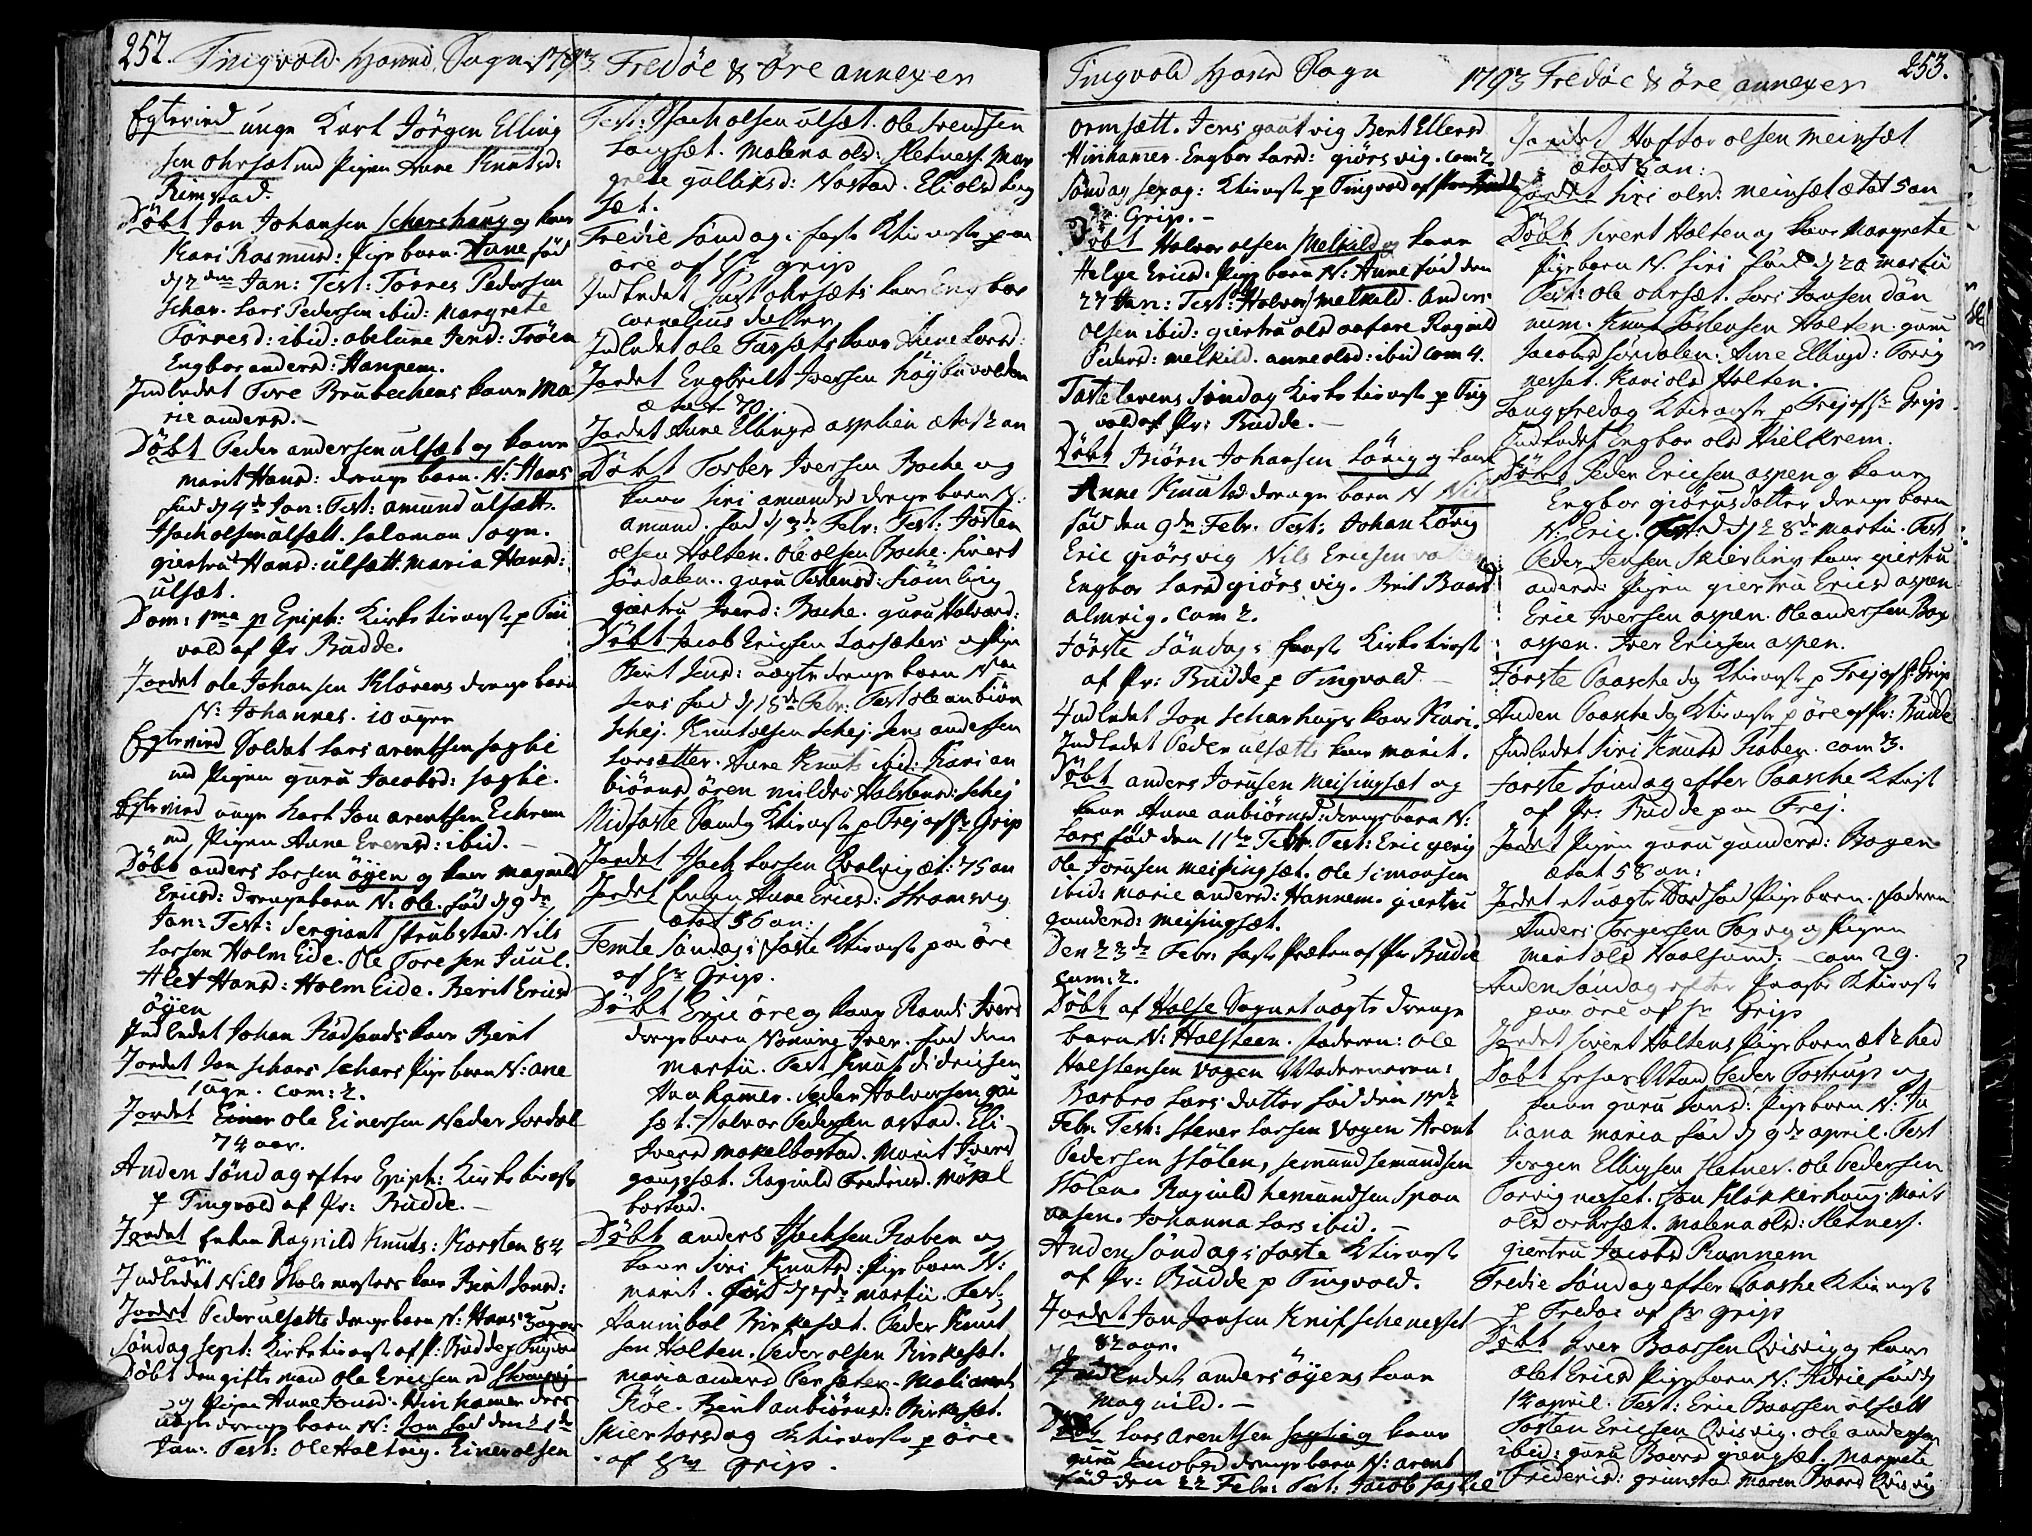 252. Tingvold Hoved Sogn 1793.
Egtevied unge Karl Jörgen Elling
sen ohrsæt med Pigen Ane Knutsd:
Rimstad.
Döbt Jon Johansen Scharshaug og kone
Kari Rasmusd: Pige barn. Hane fød
Jan: Test: Torres Pedersen
Schar. Lars Pedersen ibid: Margrete
Torresd: ibid: obelune Jensd: Tröen
Engbor andersd: Hannem.
Indledet Tore Brubechens kone Ma
rie andersd.
Döbt Peder andersen ulsæt og kone
marit Hansd: drenge barn. N: Hans
fød d 4de Jan: Test: amund ulsætt.
Isach olsen ulsætt. salamon sogn.
giertru Hansd: ulsætt. Maria Hansd:
ulsæt.
Dom: 1ma p Epiph: Kirke tieneste p Ting
vold af Pr Budde.
Jordet ole Johansen Klörens drenge barn
N: Johannes. 10 uger
Egtevied Soldat Lars arentsen sogbe
med Pigen guru Jacobsd: sogbe.
Egteviet unge Karl Jon arentsen Echrem
med Pigen Ane Evensd: ibid.
Döbt anders Larsen öyen og kone magnild
Ericsd: drengebarn N: ole. fød d 9de
Jan: Test: Sergiant Strubstad. Nils
Larsen Holm Eide. Ole Toresen Juul.
Alet Hansd: Holm Eide. Berit Ericsd
öyen
Indledet Johan Rödsands kone Berit
Jordet Jon Schars Pige barn N: ane
1 uge. com: 2.
Jordet Einer ole Einersen Neder Jordal
74 aar.
Anden Söndag efter Epiph: Kirke tieneste
p Tingvold af Pr: Budde.
Jordet Enken Ragnild Knuts: Korsten 84
aar.
Indledet Nils Skolemesters kone Berit Jonsd:
Jordet Peder ulsætts drenge barn N: Hans 3 uger
Söndag sept: Kirke tieneste af Pr: Budde p Tingvold
Döbt den gifte mand Ole Ericsen
og Pigen Anne Jonsd: Hinhamer deres
uægte drenge barn N: Jon fød den 21de
Jan: Test: Ole Haltvig. Einer olsen
Fredöe & Öre annexer
Test: Isach olsen ulsæt. Ole Svendsen
Langsæt. Malena olsd: Sletness. Mar
grete gulliksd: Nastad. Eli olsd Lang
sæt.
Tredie Söndag i faste K tieneste paa
öre af Hr grip
Indledet Just ohrsæts kone Engbor
Cornelius datter
Indledet ole Farsæts kone Ane Larsd:
Jordet Engbrigt Iversen Höybuvolden
ætat 70.
Jordet Anne Ellingsd asphen ætat 2 an
Döbt Torber Iversen Bache og
kone Siri amundsd drenge barn N:
amund. fød d 3de Febr: Test: Josten
olsen Holten. Ole olsen Bache. Sivert
Sördalen. guru Tostensd:
giertru Iversd: Bache. guru Halvorsd:
Döbt Jacob Ericsen Larsæter og Pigen
Berit Jensd: uægte drenge barn N
Jens fød d 15de Febr: Test ole anbiön
Schej. Knut olsen Schej. Jens andersen
Larsætter. Anne Knuts ibid: Kari an
biörnsd ören mildri Halstensd: Schej
Midfaste Söndag K tieneste p Frej af Hr Grip
Jordet Isach Larsen Qvalvig æt: 75 an
Jordet Enken Anne Ericsd: Stromsvig
ætat 56 an:
Femte Söndag i faste K tieneste paa öre
af Hr Grip.
Döbt Eric öre og kone Randi Iversd
drenge barn Navnlig Iver. fød den
martii. Test Knut didericsen
Hanhamer. Peder Halvorsen gau
sæt. Halvor Pedersen astad. Eli
Iversd makelbostad. Marit Iversd
gaugsæt. Ragnild Fredricsd. Mökel
bostad.
Döbt anders Isachsen Raben og
kone Siri Knutsd: Pige barn N:
marit. fød d 7de martii. Test:
Hannibal Birkesæt. Peder Knut
sen Holten. Peder olsen Birkesæt.
maria andersd Persæter. Mali arents
Röe. Berit anbiörnsd: Birkesæt.
Skiertorsdag K tieneste p öre
af Hr grip.
Tingvold Hoved Sogn
ormsætt. Jens gautvig Bent Ellersd
Hinhamer. Engbor Larsd: giörsvig. com 2.
Söndag sexag: K tieneste p Tingvold af
Hr Grip.
Döbt Halvor olsen Melkild og kone
Helge Ericsd. Pige barn N: Anne fød den
27 Jan: Test: Halvor melkild. Anders
olsen ibid: giertru olsd aafare Ragnild
Pedersd: melkild. anne olsd: ibid com 4.
Fastelavens Söndag Kirke tieneste p Ting
vold af Pr: Budde.
Döbt Biörn Johansen Lörig og kone
Anne Knutsd drenge barn N Nils
fød den 9de Febr. Test: Johan Lörig
Eric giörsvig Nils Ericsen
Engbor Larsd giörsvig. Brit Baardsd
almvig. com 2.
Förste Söndag i faste Kirke tieneste
af Pr: Budde p Tingvold.
Indledet Jon Scharhaugs kone Kari.
Indledet Peder ulsætts kone marit.
Döbt anders Jorusen Meisingsæt og
kone Anne anbiörnsd: drenge barn N:
Lars fød den 11de Febr. Test: Eric
Ole Jorusen meisingsæt. Ole Simonsen
ibid: Marie andersd: Hannem. giertru
gundersd: meisingsæt.
Den 23de Febr: faste Præken af Pr Budde
com: 2.
Döbt af Halse Sognet uægte drenge
barn N: Halsteen. faderen: Ole
Halstensen Vaagen Moderen navn:
Barbro Lars datter fød den 13de
Febr. Test: Stener Larsen Vaagen Arent
Pedersen Stölen, Semund Semundsen
Stölen. Ragnild Semundsen Span
aasen. Johanna Lars ibid.
Anden Söndag i faste K tieneste
af Pr: Budde p Tingvold.
Jordet Jon Jonsen Knifschenesset
82 aar.
Indledet anders öyens kone
Magnild.
Döbt Lars arentsen sogbe og kone
guru Jacobsd drenge barn N: arent
fød den 22 Febr: Test: Jacob sogbe
1793 Fredöe & öre annexer 253.
Jordet Haftor olsen meinsæt
ætat 8 an:
Jordet Siri olsd: meinsæt ætat 5 an
Döbt Sivert Holten og kone Margrete
Pige barn N. Siri fød d 20 martii
Test: ole ohrsæt. Lars Jonsen dön
num. Knut Jostensen Holten. guru
Jacobsd sördalen. Ane Ellingsd: Torvig
nesset. Kari olsd Holten.
Langfredag K tieneste p Frej af Hr Grip.
Indledet Engbor olsd Hielkrem.
Döbt Peder Ericsen aspen og kone
Engbor giörusdatter drenge barn
N: Eric. fød d 28de martii. Test
Peder Jensen Skierling kone giertru
andersd: Pigen giertru Ericsd aspen
Eric Iversen aspen. Ole andersen Bag
aspen. Iver Ericsen aspen.
Förste Paasche dag K tieneste p Frej af Hr Grip
Anden Paasche dag K tieneste p öre af Pr: Budde
Indledet Siri Knutsd Raben. com 3.
Forste Söndag efter Paasche K tienest
af Pr: Budde paa Frej.
Jordet Pigen guru gundersd: Bogen
ætat 58 an:
Jordet et uægte Dødfød Pige barn. faderen
Anders Torgersen Torvig og Pigen
Marit olsd Haalsund. com 29.
Anden Söndag efter Paaske K tieneste
paa öre af Hr Grip
Jordet Sivert Holtens Pige barn æt 2 hed
Döbt Peder Tostrup og
kone guru Jonsd: Pige barn N: Ju
liana maria fød d 9de april. Test
Jorgen Ellingsen Sletnes. Ole Pedersen
Torvignesset. Jon Klokkerhaug. Marit
olsd ohrsæt. Malena olsd: Sletness.
giertru Jacobsd Rannem
Tredie Söndag efter Paaske K tieneste
p Fredöe af Hr grip
Döbt Iver Baarsen Qvisvig og kone
Olet Ericsd Pige barn N: Adrie fød d
14 april. Test: Eric Baarsen ulsætt
Tosten Ericsen Qvisvig. Ole andersen
ibid: guru Baarsd giengsæt. Margrete
Fredericsd: grimstad Maren Baarsd Qvisvig